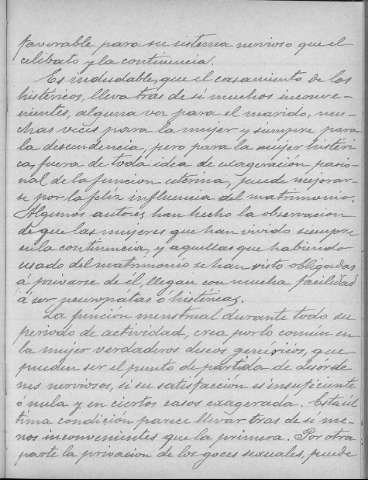 favorable para su sistema nervioso que el
celibato y la continencia.
Es indudable, que el casamiento de los
histéricos, lleva tras de sí muchos inconve-
nientes, alguna vez para el marido, mu-
chas veces para la mujer y siempre para
la descendencia, pero para la mujer histéri-
ca, fuera de toda idea de exageración pasio-
nal de la función uterina, puede mejorar-
se por la feliz influencia del matrimonio.
Algunos autores han hecho la observacion
de que las mujeres que han vivido siempre
en la continencia, y aquellas que habiendo
usado del matrimonio se han visto obligadas
á privarse de él, llegan con mucha facilidad
á ser neuropatas ó histéricas.
La función menstrual durante todo su
periodo de actividad, crea por lo comun en
la mujer verdaderos deseos genésicos, que
pueden ser el punto de partida de desorde
nes nerviosos, si su satisfacción es insuficiente
ó nula y en ciertos casos exagerada. Esta úl
tima condición parece llevar tras de sí me-
nos inconvenientes que la primera. Por otra
parte la privacion de los goces sexuales, puede